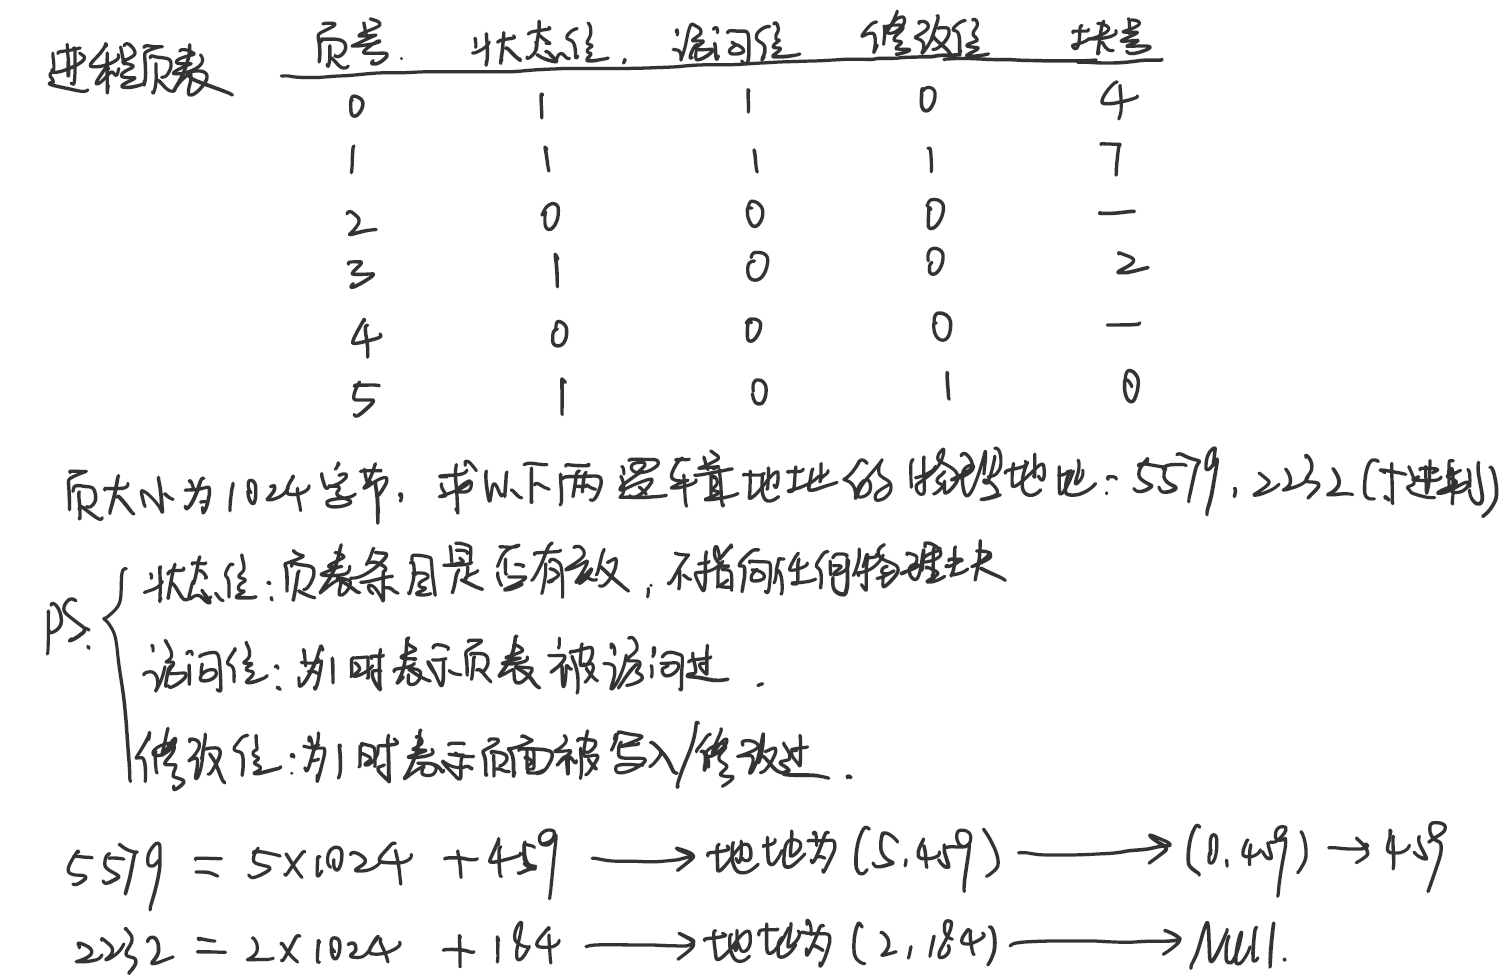 进程页表 页号. 状态位. 访问位 修改位 块号
0 1 1 0 4
1 1 1 1 7
2 0 0 0 —
3 1 0 0 2
4 0 0 0 —
5 1 0 1 0
页大小为1024字节, 求以下两虚拟地址的物理地址: 5579, 2232(十进制)
PS:
状态位:页表条目是否有效,不指向任何物理块
访问位:为1时表示页表被访问过.
修改位:为1时表示页面被写入/修改过.
5579 = 5×1024 + 459 → 地址为(5,459) → (0,459) → 459
2232 = 2×1024 + 184 → 地址为(2,184) → Null.